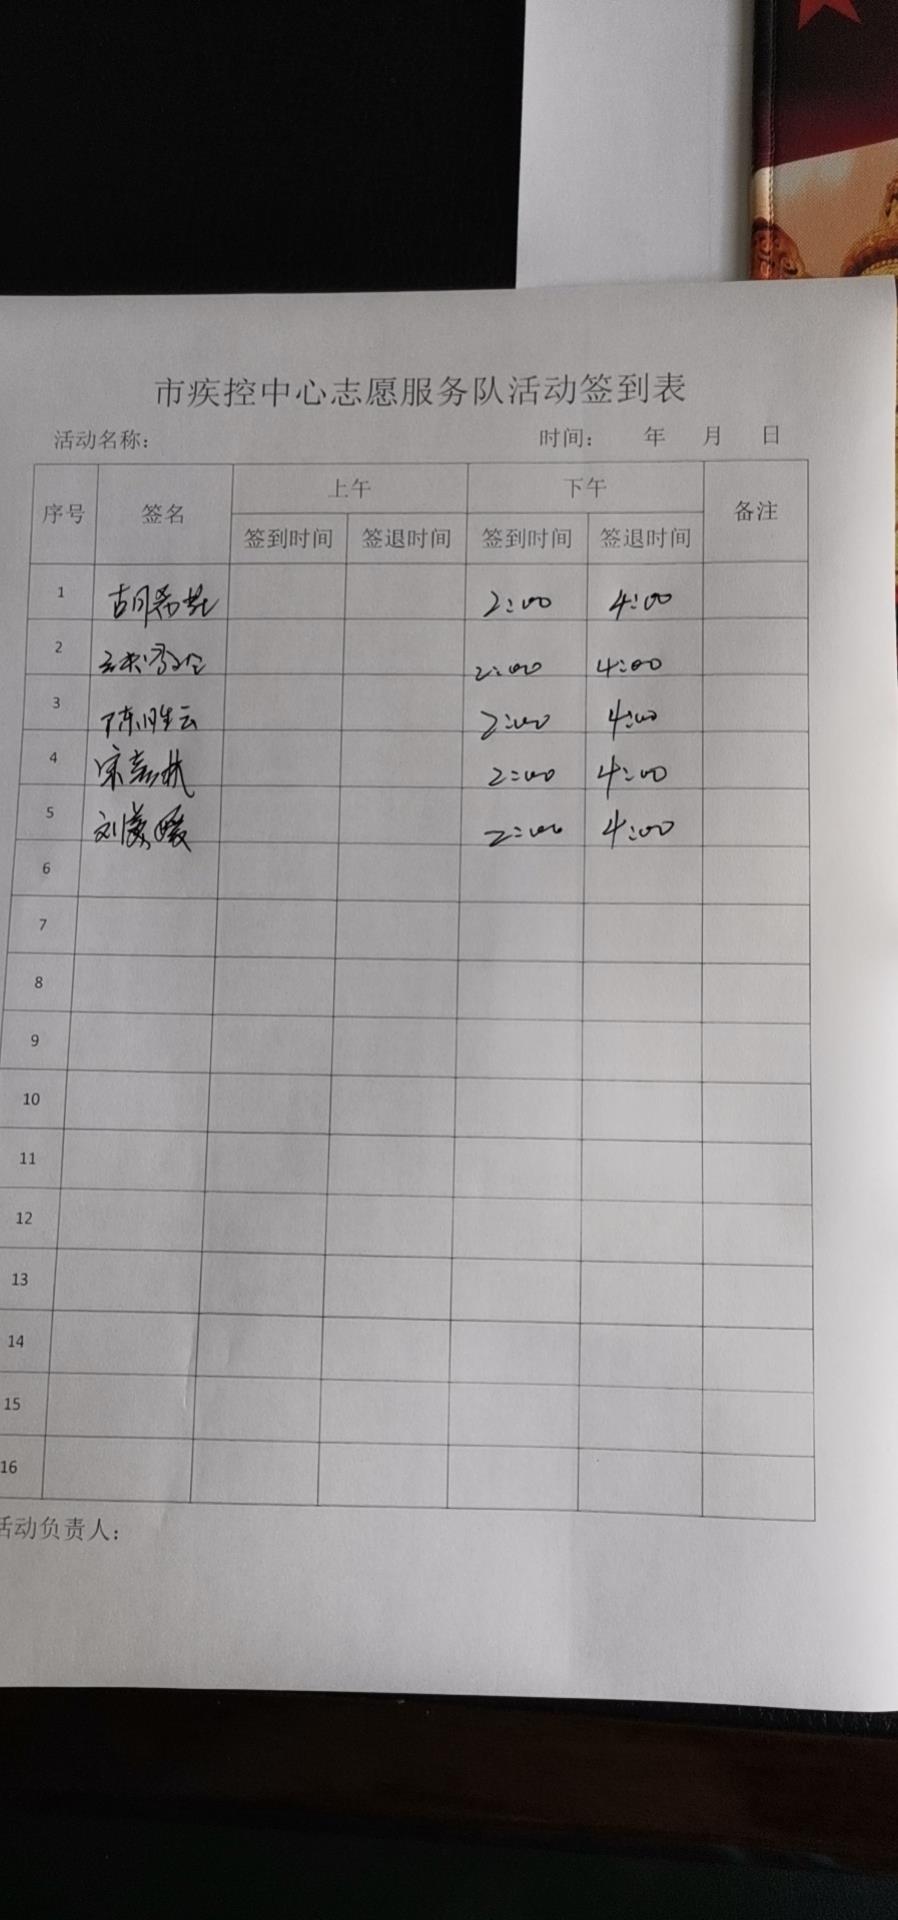 市疾控中心志愿服务队活动签到表
活动名称: 时间: 年 月 日
序号 签名 上午 下午 备注
签到时间 签退时间 签到时间 签退时间
1 胡希 2:00 4:00
2 2:00 4:00
3 陈胜云 2:00 4:00
4 宋嘉林 2:00 4:00
5 刘媛 2:00 4:00
6
7
8
9
10
11
12
13
14
15
16
活动负责人: